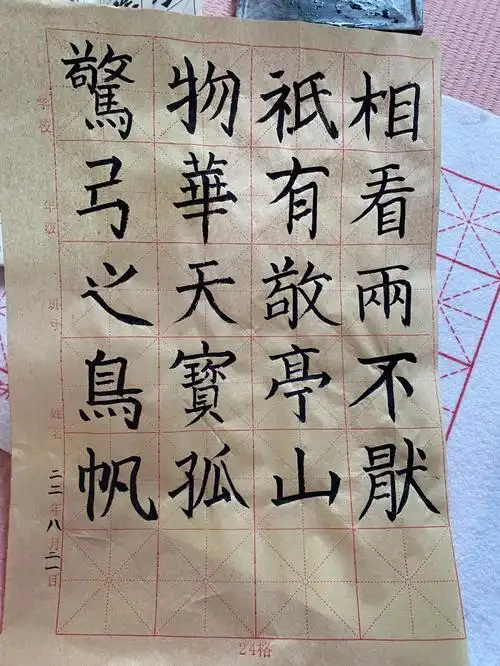 相看兩不猒
祇有敬亭山
物華天寶孤
驚弓之鳥帆
学校 年级 班号 姓名 二二年八月二一日
24格